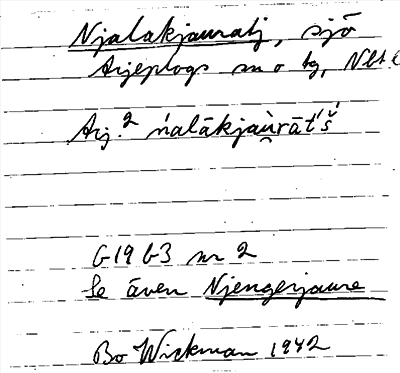 Njalakjauratj, sjö
Arjeplogs sn o bg, Nbt
Arj.² ńalākjau̯rāt́š́
G19 63 nr 2
Se även Njengerjaure
Bo Wickman 1942